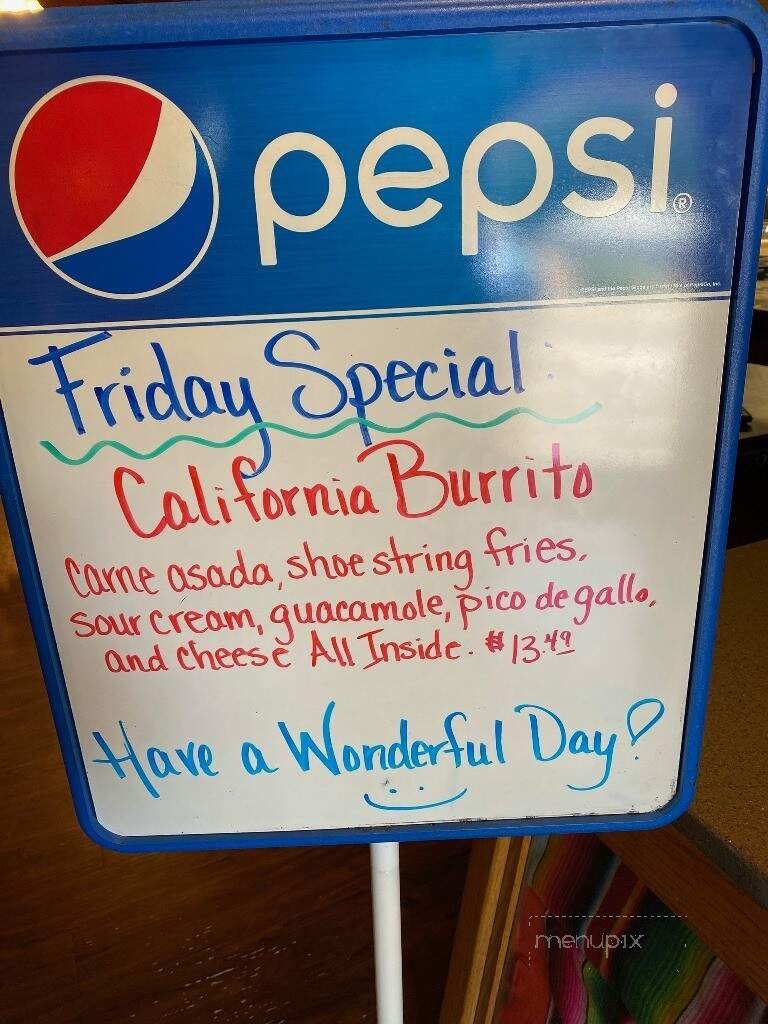 pepsi®
Friday Special:
California Burrito
Carne asada, shoe string fries,
sour cream, guacamole, pico de gallo,
and cheese All Inside. $13.49
Have a Wonderful Day!
menupix